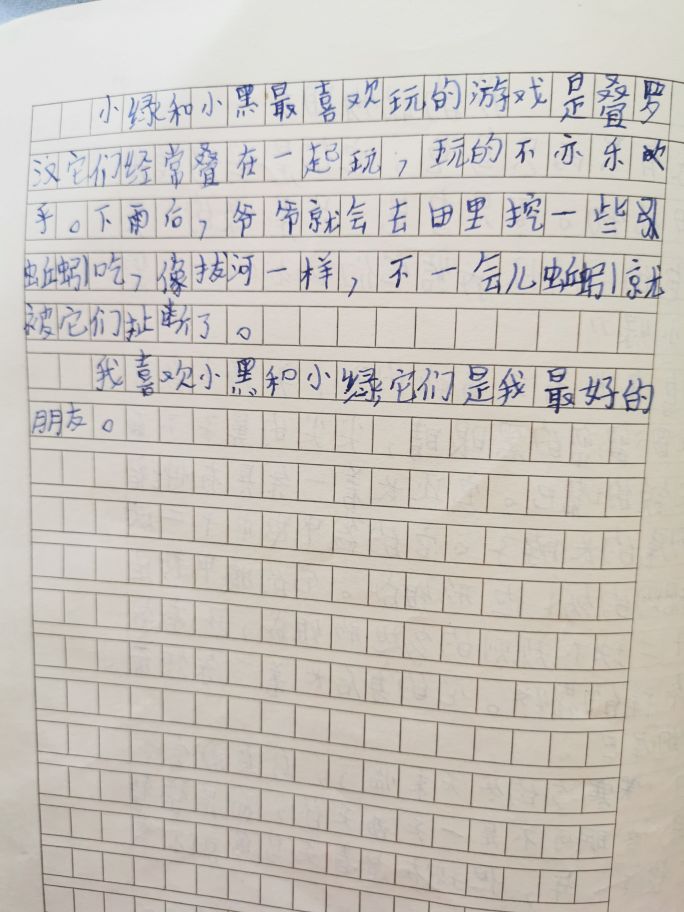 小绿和小黑最喜欢玩的游戏是叠罗
汉它们经常叠在一起玩，玩的不亦乐
乎。下雨后，爷爷就会去田里挖一些
蚯蚓吃，像拔河一样，不一会儿蚯蚓就
被它们扯断了。
我喜欢小黑和小绿,它们是我最好的
朋友。